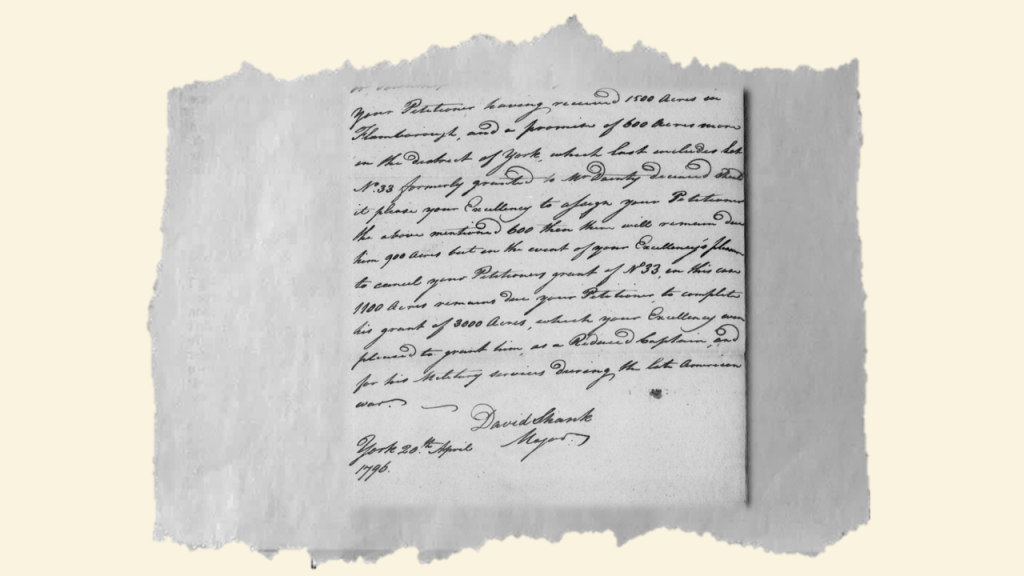 Your Petitioner having received 1500 Acres in
Flamborough, and a promise of 600 Acres more
in the district of York, which last includes Lot
No. 33 formerly granted to Mr. deceased
it please your Excellency to assign your Petitioner
the above mentioned 600 then there will remain due
him 900 Acres but in the event of your Excellency's
to cancel your Petitioners grant of No. 33, in this case
1100 Acres remains due your Petitioner, to complete
his grant of 3000 Acres, which your Excellency was
pleased to grant him, as a Reduced Captain, and
for his Military services during the late American
war.
David Shank
Major.
York 20th April
1796.